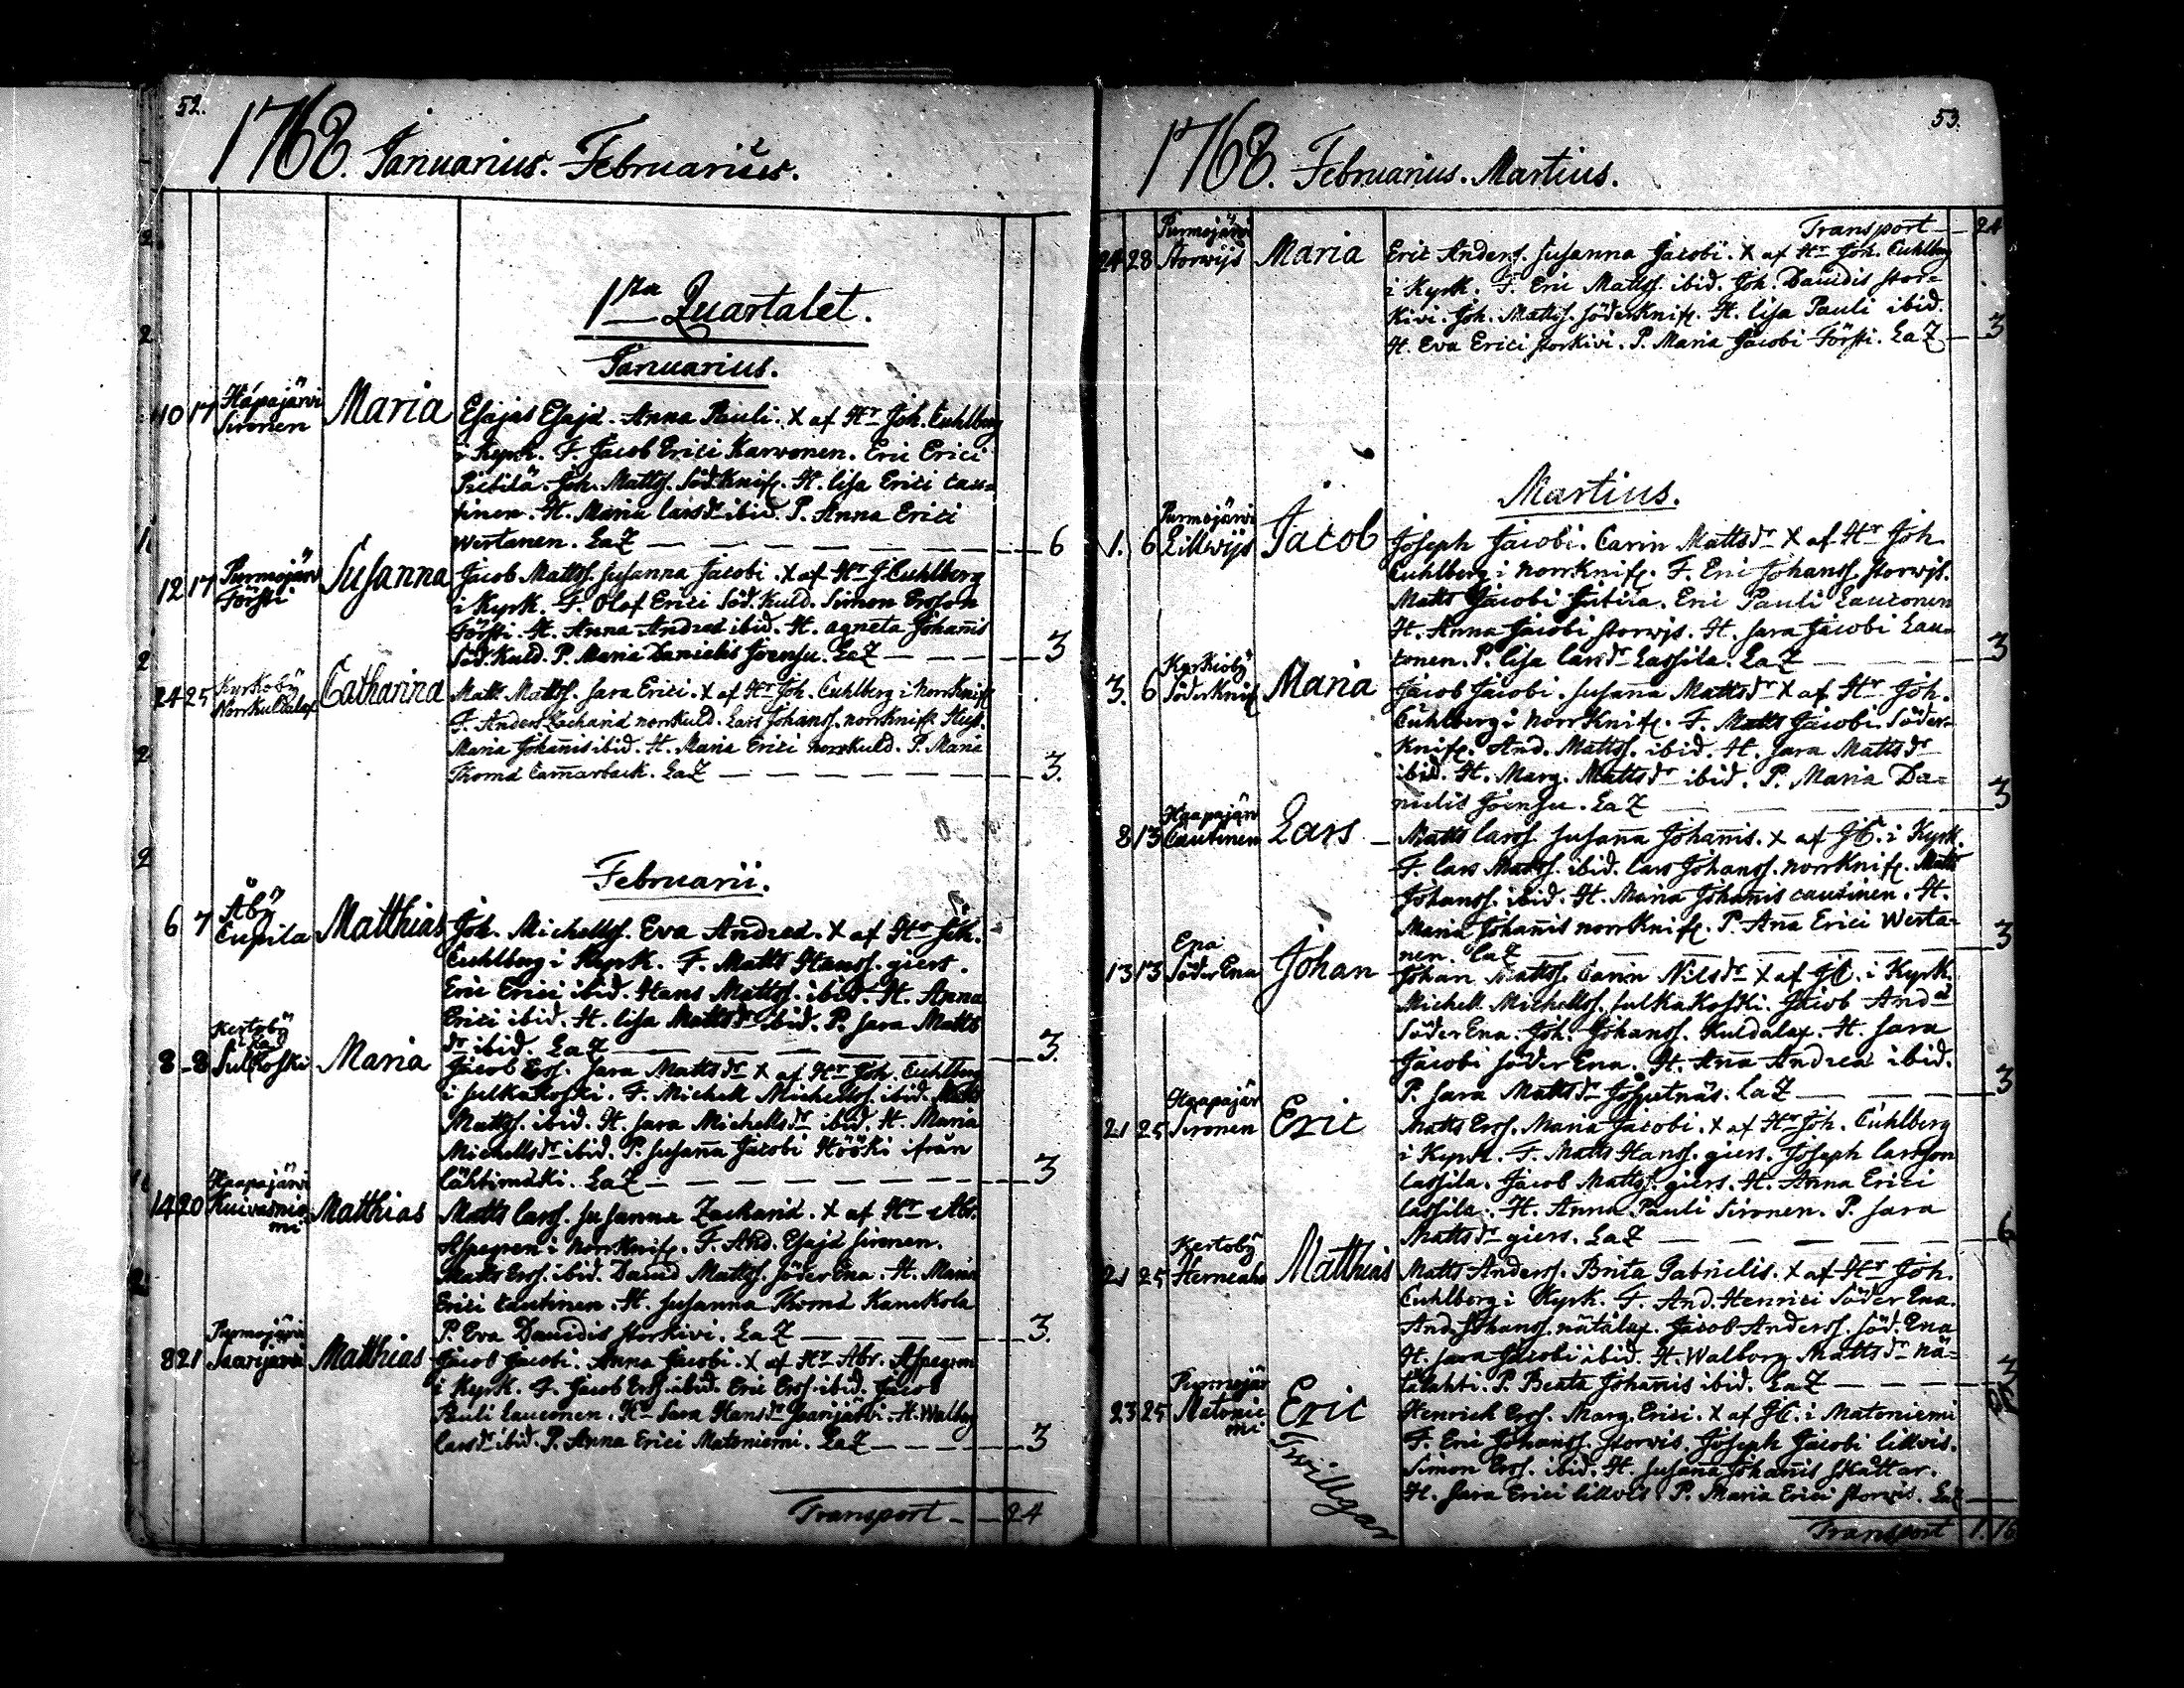 52.
1768. Januarius. Februarius.
1sta Quartalet.
Januarius.
10 17 Hapajärvi Sironen Maria Esajas Esajæ. Anna Pauli. X af Hr Joh. Cuhlberg
i Kyrk. F. Jacob Erici Karvonen. Eric Erici
Pietilä. Joh. Mattss. Söd.Knif. H. Lisa Erici Cau-
tinen. H. Maria Larsdr ibid. P. Anna Erici
Wertanen. LaZ 6
12 17 Purmojärv Försti Susanna Jacob Mattss. Susanna Jacobi. X af Hr J. Cuhlberg
i Kyrk. F. Olof Erici Söd.Kuld. Simon Ersson
Försti. H. Anna Andreæ ibid. H. Agneta Johanis
Söd.Kuld. P. Maria Danielis Joensu. LaZ 3
24 25 Kyrkoby Norrkuldalax Catharina Matts Mattss. Sara Erici. X af Hr Joh. Cuhlberg i NorrKnif
F. Anders Zachariæ norrkuld. Lars Johanss. norrKnif. Hust.
Maria Johanis ibid. H. Maria Erici norrkuld. P. Maria
Thomæ Camarback. LaZ 3.
Februarii.
6 7 Åby Cupila Matthias Joh. Michellss. Eva Andreæ. X af Hr Joh.
Cuhlberg i Kyrk. F. Matts Hanss. giers.
Eric Erici ibid. Hans Mattss. ibid. H. Anna
Erici ibid. H. Lisa Mattsdr ibid. P. Sara Matts
dr ibid. LaZ 3.
8 8 Kertoby Sulkakoski Maria Jacob Erss. Sara Mattsdr X af Hr Joh. Cuhlberg
i Sulkakoski. F. Michell Michellss. ibid. Matts
Mattss. ibid. H. Sara Michellsdr ibid. H. Maria
Michellsdr ibid. P. Susana Jacobi Hööki ifrån
Lähtimäki. LaZ 3
14 20 Haapajärvi Kuivasnie mi Matthias Matts Larss. Susanna Zachariæ. X af Hr Abr.
Aspegren i NorrKnif. F. And. Esajæ Sironen.
Matts Erss. ibid. David Mattss. Söder Ena. H. Maria
Erici Cautinen. H. Susanna Thomæ Kanckola
P. Eva Davidis Storkivi. LaZ 3.
8 21 Purmojärvi Saarijärvi Matthias Jacob Jacobi. Anna Jacobi. X af Hr Abr. Aspegren
i Kyrk. F. Jacob Erss. ibid. Eric Erss. ibid. Jacob
Pauli Lauconen. H. Sara Hansdr Saarijärvi. H. Walborg
Larsdr ibid. P. Anna Erici Matoniemi. LaZ 3
Transport 24
53.
1768. Februarius. Martius.
Transport 24
24 28 Purmojärvi Storwijs Maria Eric Anderss. Susanna Jacobi. X af Hr Joh. Cuhlberg
i Kyrk. F. Eric Mattss. ibid. Joh. Davidis Stor-
kivi. Joh. Mattss. Söderknif. H. Lisa Pauli ibid.
H. Eva Erici Storkivi. P. Maria Jacobi Försti. LaZ 3
Martius.
1. 6 Purmojärvi Lillwijs Jacob Joseph Jacobi. Carin Mattsdr X af Hr Joh
Cuhlberg i NorrKnif. F. Eric Johanss. Storwjs.
Matts Jacobi Eric Pauli Lauconen
H. Anna Jacobi Storwjs. H. Sara Jacobi Lau-
conen. P. Lisa Larsdr Lassila. LaZ 3
3. 6 Kyrkioby Söderknif Maria Jacob Jacobi. Susana Mattsdr X af Hr Joh.
Cuhlberg i NorrKnif. F. Matts Jacobi Söder-
Knif. And. Mattss. ibid. H. Sara Mattsdr
ibid. H. Marg. Mattsdr ibid. P. Maria Da-
nielis Joensu. LaZ 3
8 13 Haapajärv Cautinen Lars Matts Larss. Susana Johanis. X af JC. i Kyrk.
F. Lars Mattss. ibid. Lars Johanss. norrKnif. Matts
Johanss. ibid. H. Maria Johanis Cautinen. H.
Maria Johanis norrKnif. P. Ana Erici Werta-
nen. LaZ 3
13 13 Ena Söder Ena Johan Johan Mattss. Carin Nilsdr X af JC. i Kyrk.
Michell Michellss. Sulkakoski. Jacob Andæ
Söder Ena. Joh. Johanss. Kuldalax. H. Sara
Jacobi Söder Ena. H. Ana Andreæ ibid.
P. Sara Mattsdr LaZ 3
21 25 Haapajär Sironen Eric Matts Erss. Maria Jacobi. X af Hr Joh. Cuhlberg
i Kyrk. F. Matts Hanss. giers. Joseph Larsson
Lassila. Jacob Mattss. giers. H. Anna Erici
Lassila. H. Anna Pauli Sironen. P. Sara
Mattsdr giers. LaZ 6
21 25 Kertoby Herneaho Matthias Matts Anderss. Brita Gabrielis. X af Hr Joh.
Cuhlberg i Kyrk. F. And. Henrici Söder Ena.
And. Johanss. nätälax. Jacob Anderss. Söd. Ena
H. Sara Jacobi ibid. H. Walborg Mattsdr nä-
tälahti. P. Beata Johanis ibid. LaZ 3
23 25 Purmojär Matonie mi Eric Henrich Erss. Marg. Erici. X af JC. i Matoniemi
Twillgar F. Eric Johanss. Storvis. Joseph Jacobi Lillvis.
Simon Erss. ibid. H. Susana Johanis Skåttar.
H. Sara Erici Lillvis. P. Maria Erici Storvis. LaZ
Transport 1. 16